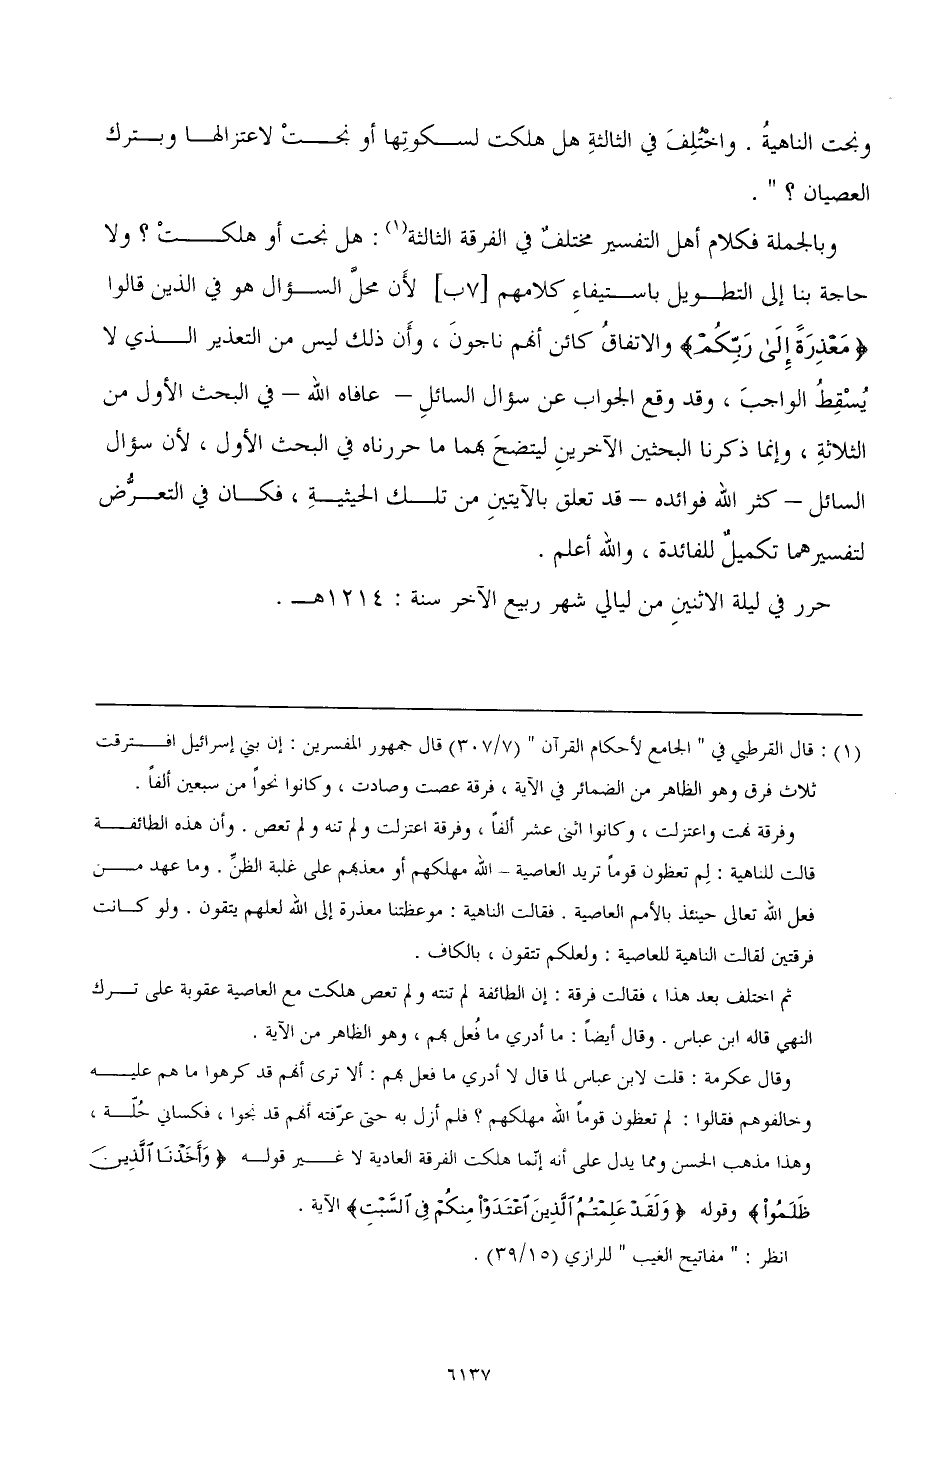 ونجت الناهيةُ . واختُلِفَ في الثالثةِ هل هلكت لسكوتِها أو نجتْ لاعتزالها وبترك
العصيان ؟ " .
وبالجملة فكلام أهل التفسير مختلفٌ في الفرقة الثالثة(١) : هل نجت أو هلكتْ ؟ ولا
حاجة بنا إلى التطويل باستيفاءِ كلامهم [٧ب] لأن محلَّ السؤال هو في الذين قالوا
﴿ مَعْذِرَةً إِلَىٰ رَبِّكُمْ﴾ والاتفاقُ كائن أنهم ناجونَ ، وأن ذلك ليس من التعذير الذي لا
يُسْقِطُ الواجبَ ، وقد وقع الجواب عن سؤال السائلِ – عافاه الله – في البحث الأول من
الثلاثةِ ، وإنما ذكرنا البحثين الآخرينِ ليتضحَ بهما ما حررناه في البحث الأول ، لأن سؤال
السائل – كثر الله فوائده – قد تعلق بالآيتينِ من تلك الحيثيةِ ، فكان في التعرُّض
لتفسيرهما تكميلٌ للفائدة ، والله أعلم .
حرر في ليلة الاثنينِ من ليالي شهر ربيع الآخر سنة : ١٢١٤هـ .
(١) : قال القرطبي في " الجامع لأحكام القرآن " (٣٠٧/٧) قال جمهور المفسرين : إن بني إسرائيل افترقت
ثلاث فرق وهو الظاهر من الضمائر في الآية ، فرقة عصت وصادت ، وكانوا نحواً من سبعين ألفاً .
وفرقة نهت واعتزلت ، وكانوا اثنى عشر ألفاً ، وفرقة اعتزلت ولم تنه ولم تعص . وأن هذه الطائفة
قالت للناهية : لِم تعظون قوماً تريد العاصية – الله مهلكهم أو معذبهم على غلبة الظنِّ . وما عهد من
فعل الله تعالى حينئذ بالأمم العاصية . فقالت الناهية : موعظتنا معذرة إلى الله لعلهم يتقون . ولو كانت
فرقتين لقالت الناهية للعاصية : ولعلكم تتقون ، بالكاف .
ثم اختلف بعد هذا ، فقالت فرقة : إن الطائفة لم تنته ولم تعص هلكت مع العاصية عقوبة على ترك
النهي قاله ابن عباس . وقال أيضاً : ما أدري ما فُعل بهم ، وهو الظاهر من الآية .
وقال عكرمة : قلت لابن عباس لما قال لا أدري ما فعل بهم : ألا ترى أنهم قد كرهوا ما هم عليه
وخالفوهم فقالوا : لم تعظون قوماً الله مهلكهم ؟ فلم أزل به حتى عرّفته أنهم قد نجوا ، فكساني حُلّة ،
وهذا مذهب الحسن ومما يدل على أنه إنّما هلكت الفرقة العادية لا غير قوله ﴿ وَأَخَذْنَا ٱلَّذِينَ
ظَلَمُواْ ﴾ وقوله ﴿ وَلَقَدْ عَلِمْتُمُ ٱلَّذِينَ ٱعْتَدَوْاْ مِنكُمْ فِى ٱلسَّبْتِ﴾ الآية .
انظر : " مفاتيح الغيب " للرازي (٣٩/١٥) .
٦١٣٧